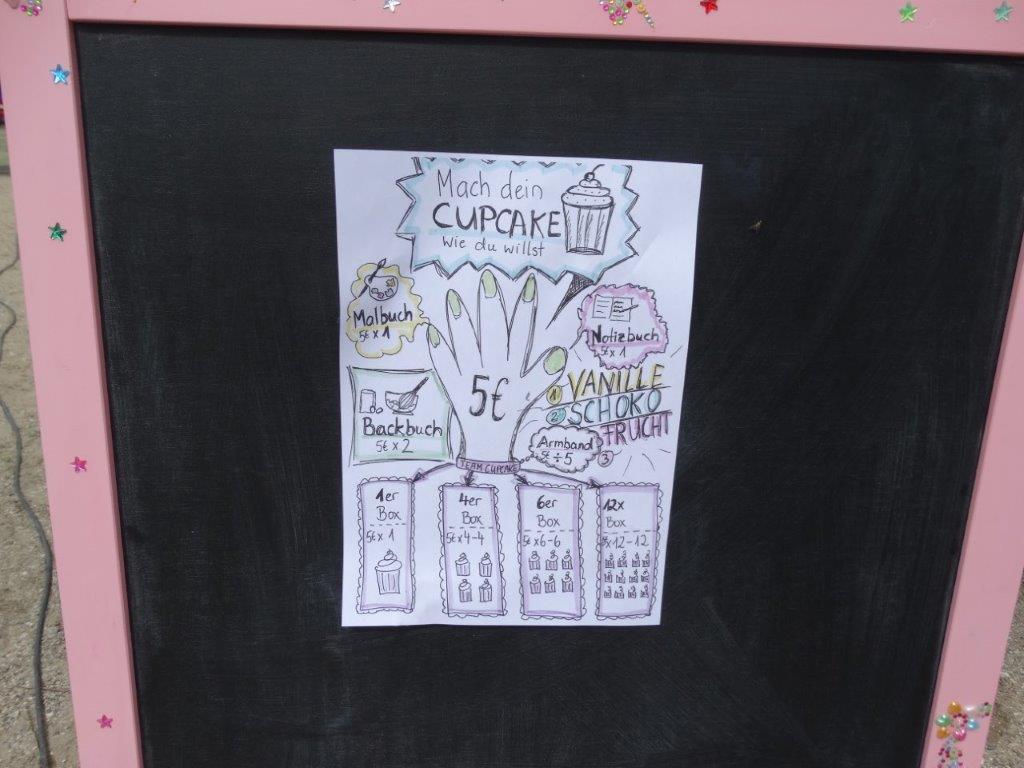 Mach dein
CUPCAKE
wie du willst
Malbuch
5€ x 1
Notizbuch
5€ x 1
5€
1 VANILLE
2 SCHOKO
3 FRUCHT
Backbuch
5€ x 2
Armband
5€ ÷ 5
TEAM CUPCAKE
1er
Box
5€ x 1
4er
Box
5€ x 4-4
6er
Box
5€ x 6-6
12x
Box
5€ x 12-12